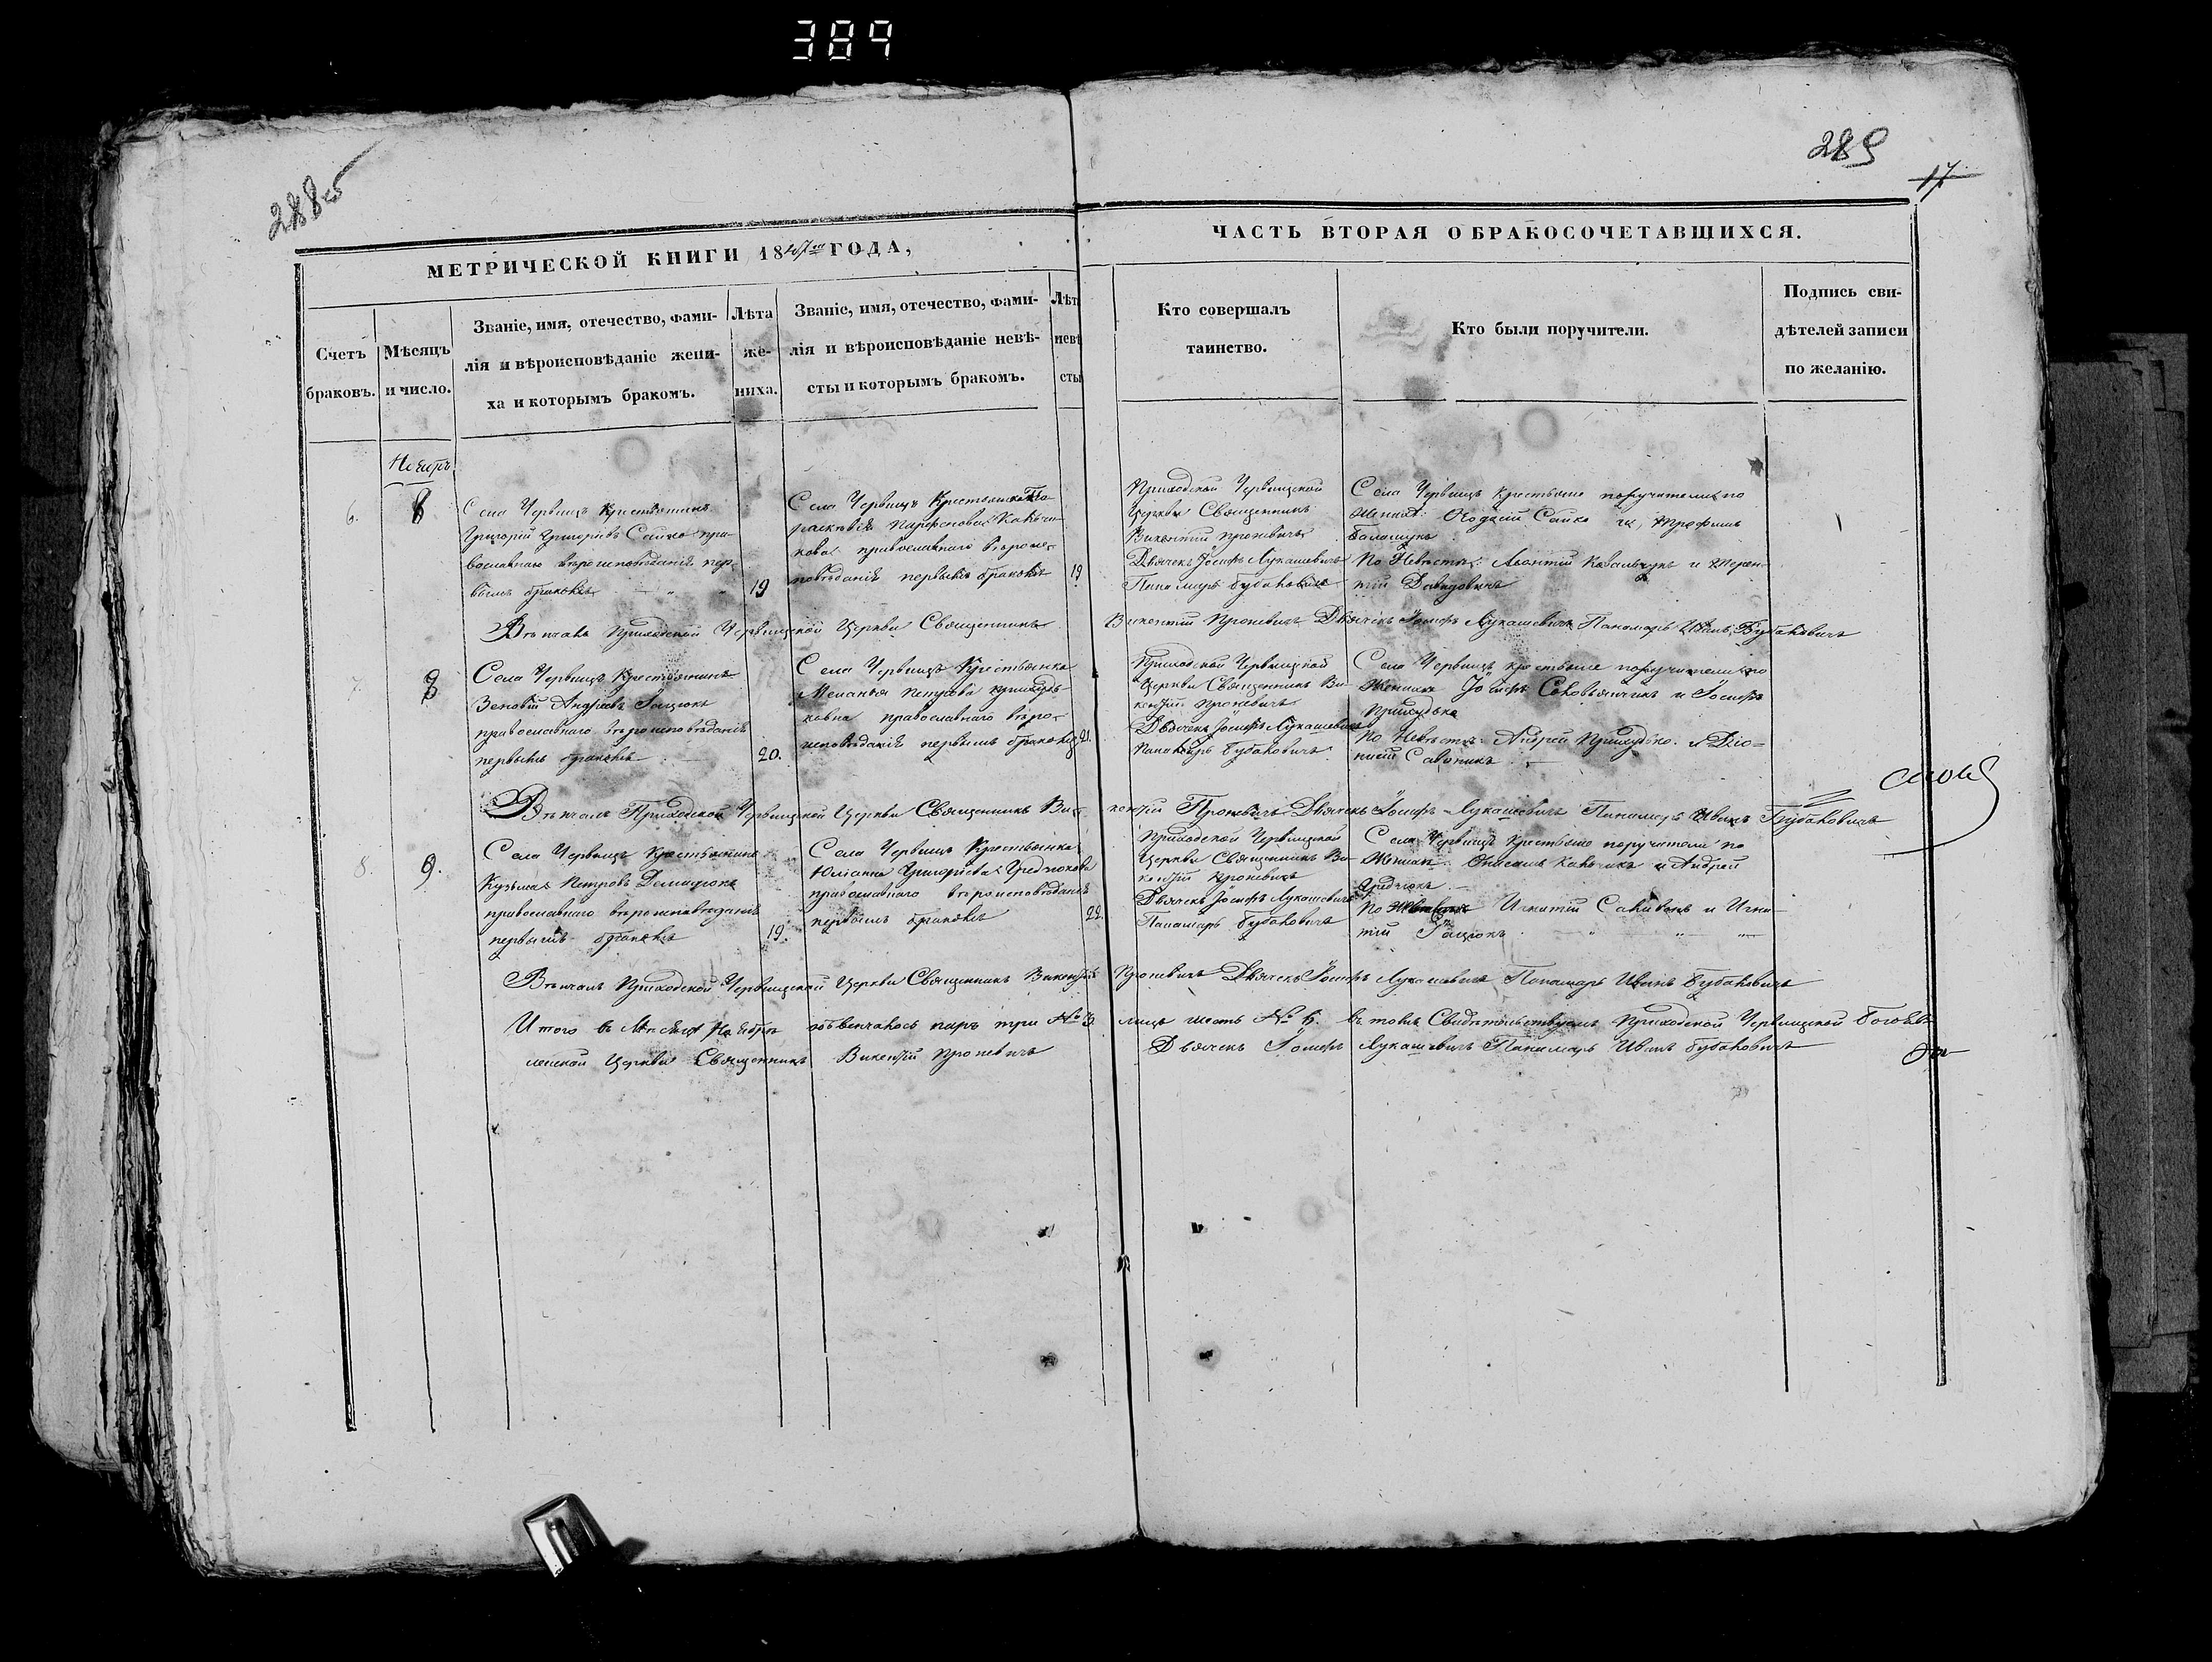 389
288об
289
17
МЕТРИЧЕСКОЙ КНИГИ 1847го ГОДА,
ЧАСТЬ ВТОРАЯ О БРАКОСОЧЕТАВШИХСЯ.
Счетъ
браковъ.
Мѣсяцъ
и число.
Званіе, имя, отечество, фами-
лія и вѣроисповѣданіе жени-
ха и которымъ бракомъ.
Лѣта
же-
ниха.
Званіе, имя, отечество, фами-
лія и вѣроисповѣданіе невѣ-
сты и которымъ бракомъ.
Лѣт
невѣ
сты
Кто совершалъ
таинство.
Кто были поручители.
Подпись сви-
дѣтелей записи
по желанію.
Ноябрь
6.
8
Села Червищъ Крестьянинъ
Григорій Григоріевъ Сайко пра-
вославнаго вѣроисповѣданія пер-
вымъ бракомъ
19
Села Червищъ Крестьянка Па-
раскевія
православнаго вѣроис-
повѣданія первымъ бракомъ
19
Приходской Червищской
Церкви Священникъ
Викентій Проневичъ
Дьячекъ Іосифъ Лукашевичъ
Панамарь Бубановичъ
Села Червищъ крестьяне поручители по
женихѣ: Сайко и Трофимъ
Балашукъ
По Невѣстѣ: Леонтій Ковальчукъ и Терен-
тій
Вѣнчалъ Приходской Червищской Церкви Священникъ Викентій Проневичъ Дьячекъ Іосифъ Лукашевичъ Панамарь Иванъ Бубановичъ
7.
8
Села Червищъ Крестьянинъ
Зеновій Андреевъ Гацюкъ
православнаго вѣроисповѣданія
первымъ бракомъ
20.
Села Червищъ Крестьянка
Меланья Петрова
православнаго вѣро-
исповѣданія первымъ бракомъ
21.
Приходской Червищской
Церкви Священникъ Ви-
кентій Проневичъ
Дьячекъ Іосифъ Лукашевичъ
Панамарь Бубановичъ
Села Червищъ крестьяне поручители по
Женихѣ Іосифъ и Іосифъ
По Невѣстѣ: Андрей и Діо-
нисій
Вѣнчалъ Приходской Червищской Церкви Священникъ Викентій Проневичъ Дьячекъ Іосифъ Лукашевичъ Панамарь Иванъ Бубановичъ
8.
9.
Села Червищъ Крестьянинъ
Кузьма Петровъ Демидюкъ
православнаго вѣроисповѣданія
первымъ бракомъ
19.
Села Червищъ Крестьянка
Юліанна Григорьева
православнаго вѣроисповѣданія
первымъ бракомъ
22.
Приходской Червищской
Церкви Священникъ Ви-
кентій Проневичъ
Дьячекъ Іосифъ Лукашевичъ
Панамарь Бубановичъ
Села Червищъ Крестьяне поручители по
Женихѣ: и Андрей
По Игнатій и Игна-
тій Гацюкъ
Вѣнчалъ Приходской Червищской Церкви Священникъ Викентій Проневичъ Дьячекъ Іосифъ Лукашевичъ Панамарь Иванъ Бубановичъ
Итого въ Мѣсяцѣ Ноябрѣ обвенчалось паръ три № 3. лицъ шесть № 6. въ томъ Свидѣтельствуемъ Приходской Червищской
Церкви Священникъ Викентій Проневичъ Дьячекъ Іосифъ Лукашевичъ Панамарь Иванъ Бубановичъ